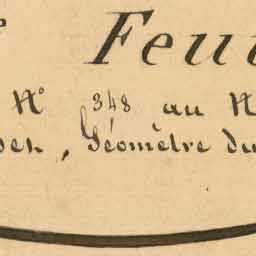 Feui
N° 348 au N
, Géomètre du